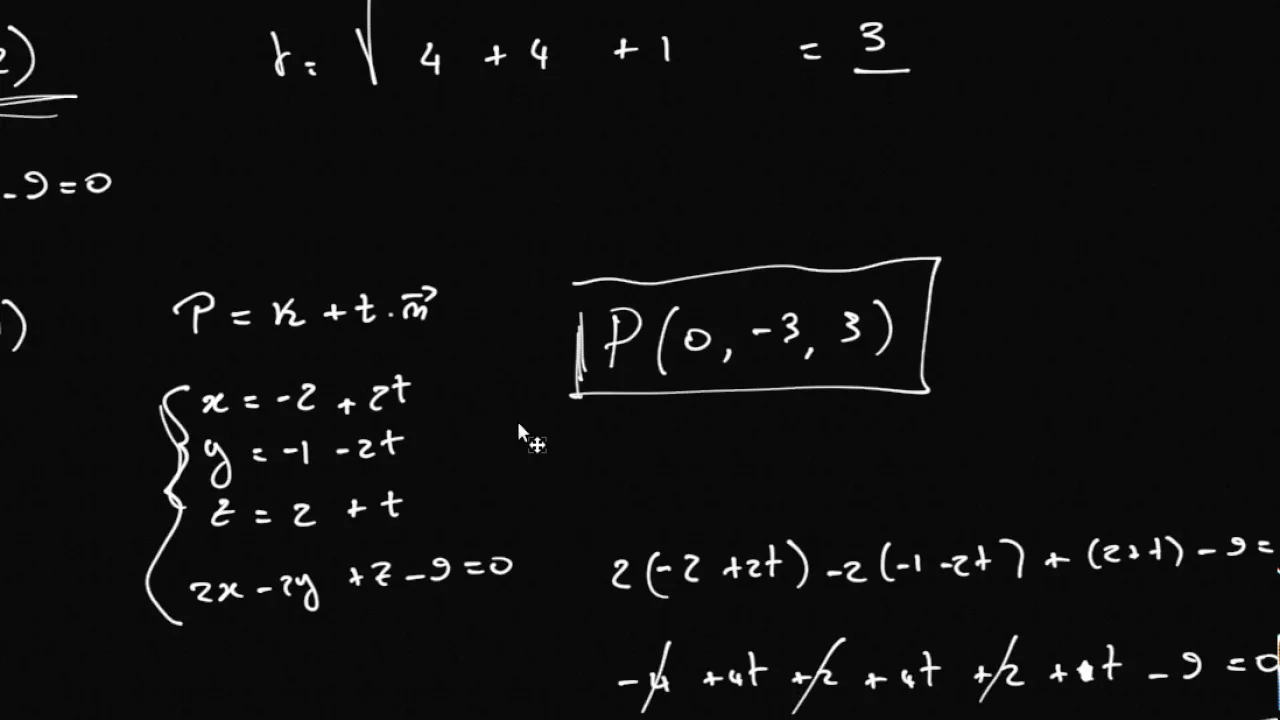 2) r = √ 4 + 4 + 1 = 3
-9=0
) P = K + t · n⃗
P(0, -3, 3)
x = -2 + 2t
y = -1 - 2t
z = 2 + t
2x - 2y + z - 9 = 0
2(-2 + 2t) - 2(-1 - 2t) + (2 + t) - 9 =
-4 + 4t + 2 + 4t + 2 + t - 9 = 0